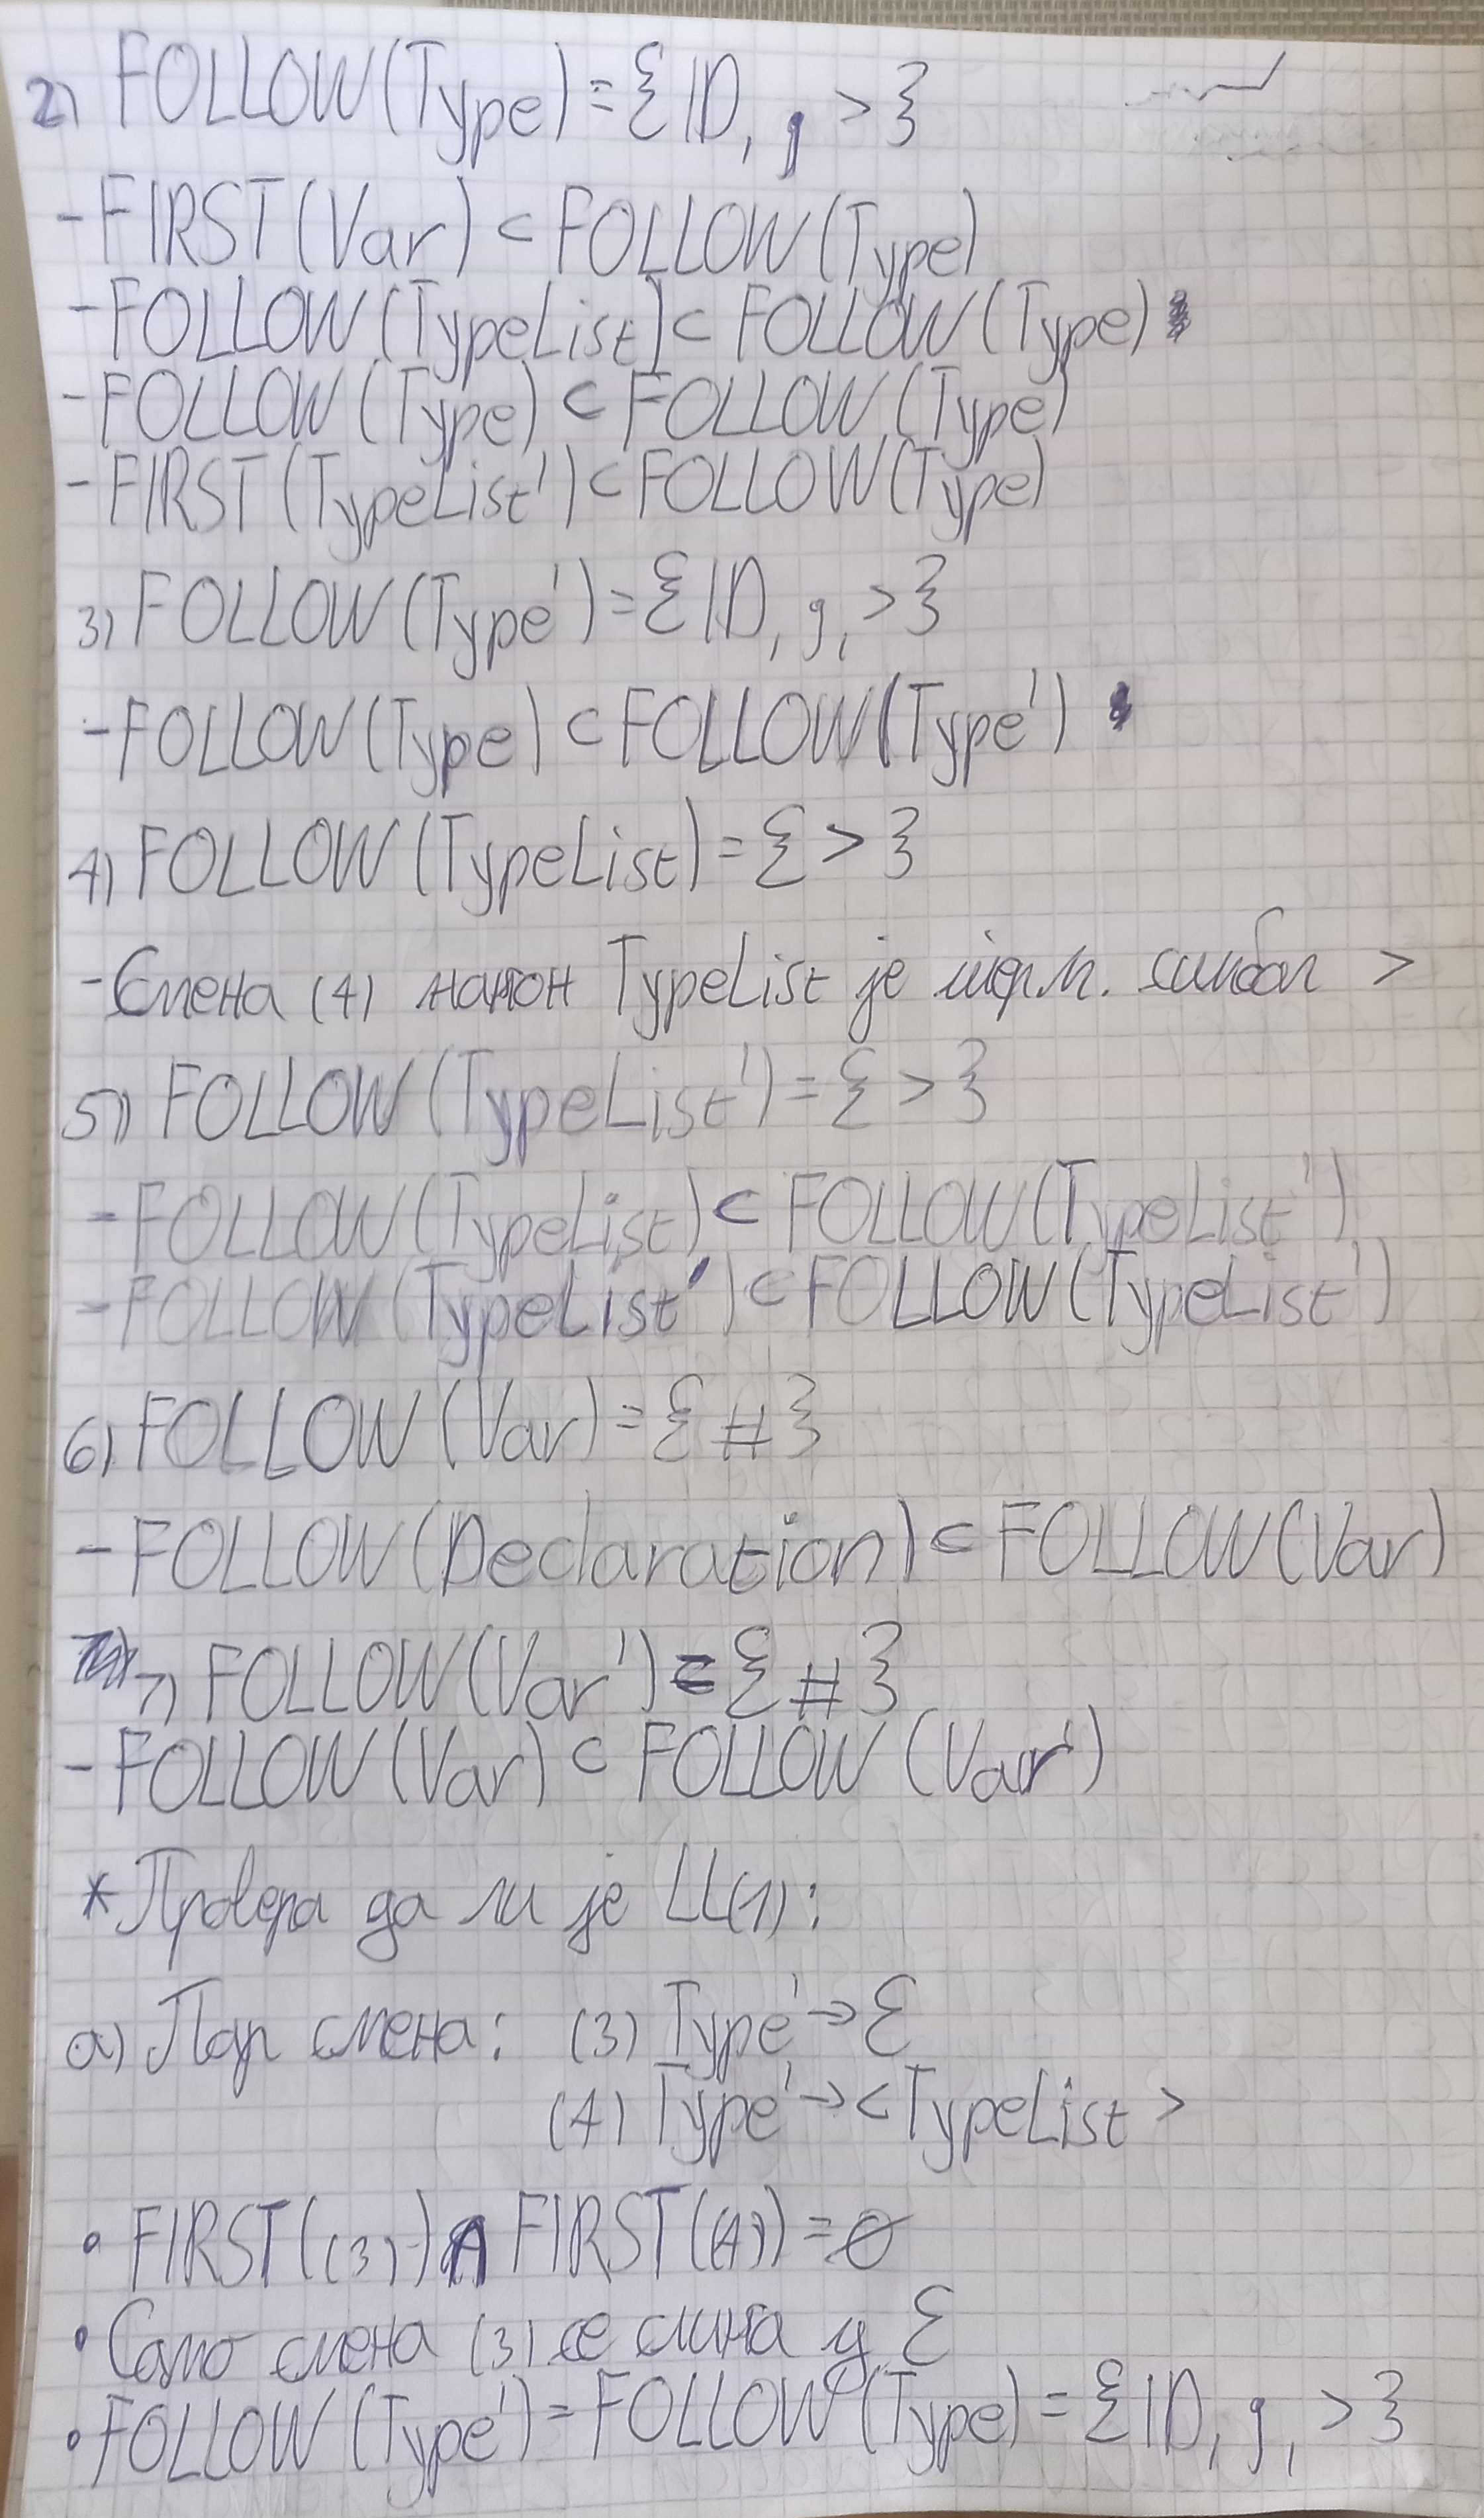 2) FOLLOW(Type) = {ID, g >}
- FIRST(Var) ⊂ FOLLOW(Type)
- FOLLOW(TypeList) ⊂ FOLLOW(Type)
- FOLLOW(Type) ⊂ FOLLOW(Type)
- FIRST(TypeList') ⊂ FOLLOW(Type)
3) FOLLOW(Type') = {ID, g, >}
- FOLLOW(Type) ⊂ FOLLOW(Type')
4) FOLLOW(TypeList) = {>}
- Смена (4) након TypeList је терм. симбол >
5) FOLLOW(TypeList') = {>}
- FOLLOW(TypeList) ⊂ FOLLOW(TypeList')
- FOLLOW(TypeList') ⊂ FOLLOW(TypeList')
6) FOLLOW(Var) = {#}
- FOLLOW(Declaration) ⊂ FOLLOW(Var)
7) FOLLOW(Var') = {#}
- FOLLOW(Var) ⊂ FOLLOW(Var')
* Провера да ли је LL(1):
а) Пар смена: (3) Type' → ε
(4) Type' → <TypeList>
• FIRST((3)) ∩ FIRST((4)) = ∅
• Само смена (3) се слика у ε
• FOLLOW(Type') = FOLLOW(Type) = {ID, g, >}